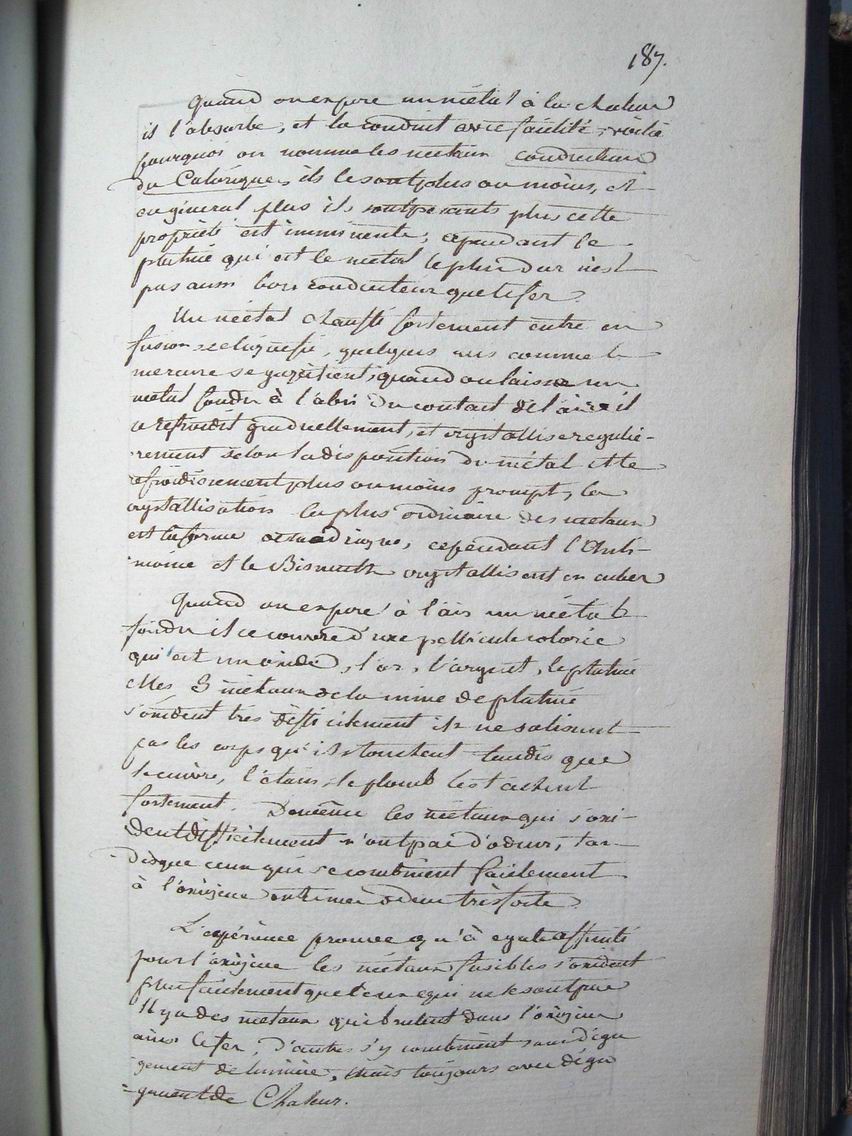 187.
Quand on expose un métal à la chaleur
il l'absorbe, et la conduit avec facilité, voila
pourquoi on nomme les metaux conducteurs
du Calorique, ils le sont plus ou moins, et
en géneral plus ils sont pesants plus cette
propriété est imminente; cependant le
platine qui est le metal le plus dur n'est
pas aussi bon conducteur que le fer.
Un métal chauffé fortement entre en
fusion se liquefie, quelques uns comme le
mercure se gazéifient, quand on laisse un
métal fondu à l'abri du contact de l'air il
se refroidit graduellement, et crystallise regulie-
rement selon la disposition du métal et le
refroidissement plus ou moins prompt, la
crystallisation la plus ordinaire des metaux
est la forme octaedrique, cependant l'Anti-
moine et le Bismuth crystallisent en cubes
Quand on expose à l'air un métal
fondu il se couvre d'une pellicule colorée
qui est un oxide, l'or, l'argent, le platine
et les 3 métaux de la mine de platine
s'oxident très difficilement ils ne salissent
pas les corps qu'ils touchent tandis que
le cuivre, l'étain, le plomb les tachent
fortement. De même les métaux qui s'oxi-
dent difficilement n'ont pas d'odeur, tan-
disque ceux qui se combinent facilement
à l'oxigene ont une odeur très forte.
L'expérience prouve qu'à egale affinité
pour l'oxigene les métaux fusibles s'oxident
plus facilement que ceux qui ne le sont pas
Il y a des metaux qui brulent dans l'oxigene
ainsi le fer, d'autres s'y combinent sans déga
gement de lumière, mais toujours avec déga
=gement de Chaleur.